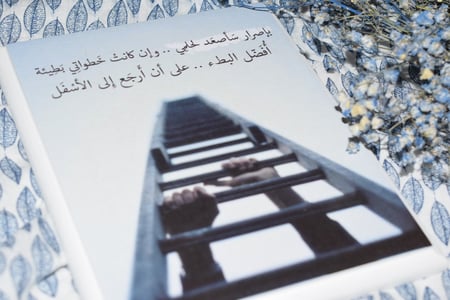 بإصرار سأصعد لحلمي .. وإن كانت خطواتي بطيئة
أفضل البطء .. على أن أرجع إلى الأسفل